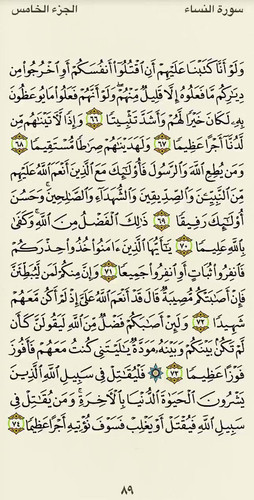 سورة النساء الجزء الخامس
وَلَوْ أَنَّا كَتَبْنَا عَلَيْهِمْ أَنِ ٱقْتُلُوٓا۟ أَنفُسَكُمْ أَوِ ٱخْرُجُوا۟ مِن
دِيَـٰرِكُم مَّا فَعَلُوهُ إِلَّا قَلِيلٌ مِّنْهُمْ ۖ وَلَوْ أَنَّهُمْ فَعَلُوا۟ مَا يُوعَظُونَ
بِهِۦ لَكَانَ خَيْرًا لَّهُمْ وَأَشَدَّ تَثْبِيتًا ٦٦ وَإِذًا لَّـَٔاتَيْنَـٰهُم مِّن
لَّدُنَّآ أَجْرًا عَظِيمًا ٦٧ وَلَهَدَيْنَـٰهُمْ صِرَٰطًا مُّسْتَقِيمًا ٦٨
وَمَن يُطِعِ ٱللَّهَ وَٱلرَّسُولَ فَأُو۟لَـٰٓئِكَ مَعَ ٱلَّذِينَ أَنْعَمَ ٱللَّهُ عَلَيْهِم
مِّنَ ٱلنَّبِيِّـۧنَ وَٱلصِّدِّيقِينَ وَٱلشُّهَدَآءِ وَٱلصَّـٰلِحِينَ ۚ وَحَسُنَ
أُو۟لَـٰٓئِكَ رَفِيقًا ٦٩ ذَٰلِكَ ٱلْفَضْلُ مِنَ ٱللَّهِ ۚ وَكَفَىٰ
بِٱللَّهِ عَلِيمًا ٧٠ يَـٰٓأَيُّهَا ٱلَّذِينَ ءَامَنُوا۟ خُذُوا۟ حِذْرَكُمْ
فَٱنفِرُوا۟ ثُبَاتٍ أَوِ ٱنفِرُوا۟ جَمِيعًا ٧١ وَإِنَّ مِنكُمْ لَمَن لَّيُبَطِّئَنَّ
فَإِنْ أَصَـٰبَتْكُم مُّصِيبَةٌ قَالَ قَدْ أَنْعَمَ ٱللَّهُ عَلَىَّ إِذْ لَمْ أَكُن مَّعَهُمْ
شَهِيدًا ٧٢ وَلَئِنْ أَصَـٰبَكُمْ فَضْلٌ مِّنَ ٱللَّهِ لَيَقُولَنَّ كَأَن
لَّمْ تَكُنۢ بَيْنَكُمْ وَبَيْنَهُۥ مَوَدَّةٌ يَـٰلَيْتَنِى كُنتُ مَعَهُمْ فَأَفُوزَ
فَوْزًا عَظِيمًا ٧٣ ۞ فَلْيُقَـٰتِلْ فِى سَبِيلِ ٱللَّهِ ٱلَّذِينَ
يَشْرُونَ ٱلْحَيَوٰةَ ٱلدُّنْيَا بِٱلْـَٔاخِرَةِ ۚ وَمَن يُقَـٰتِلْ فِى
سَبِيلِ ٱللَّهِ فَيُقْتَلْ أَوْ يَغْلِبْ فَسَوْفَ نُؤْتِيهِ أَجْرًا عَظِيمًا ٧٤
٨٩